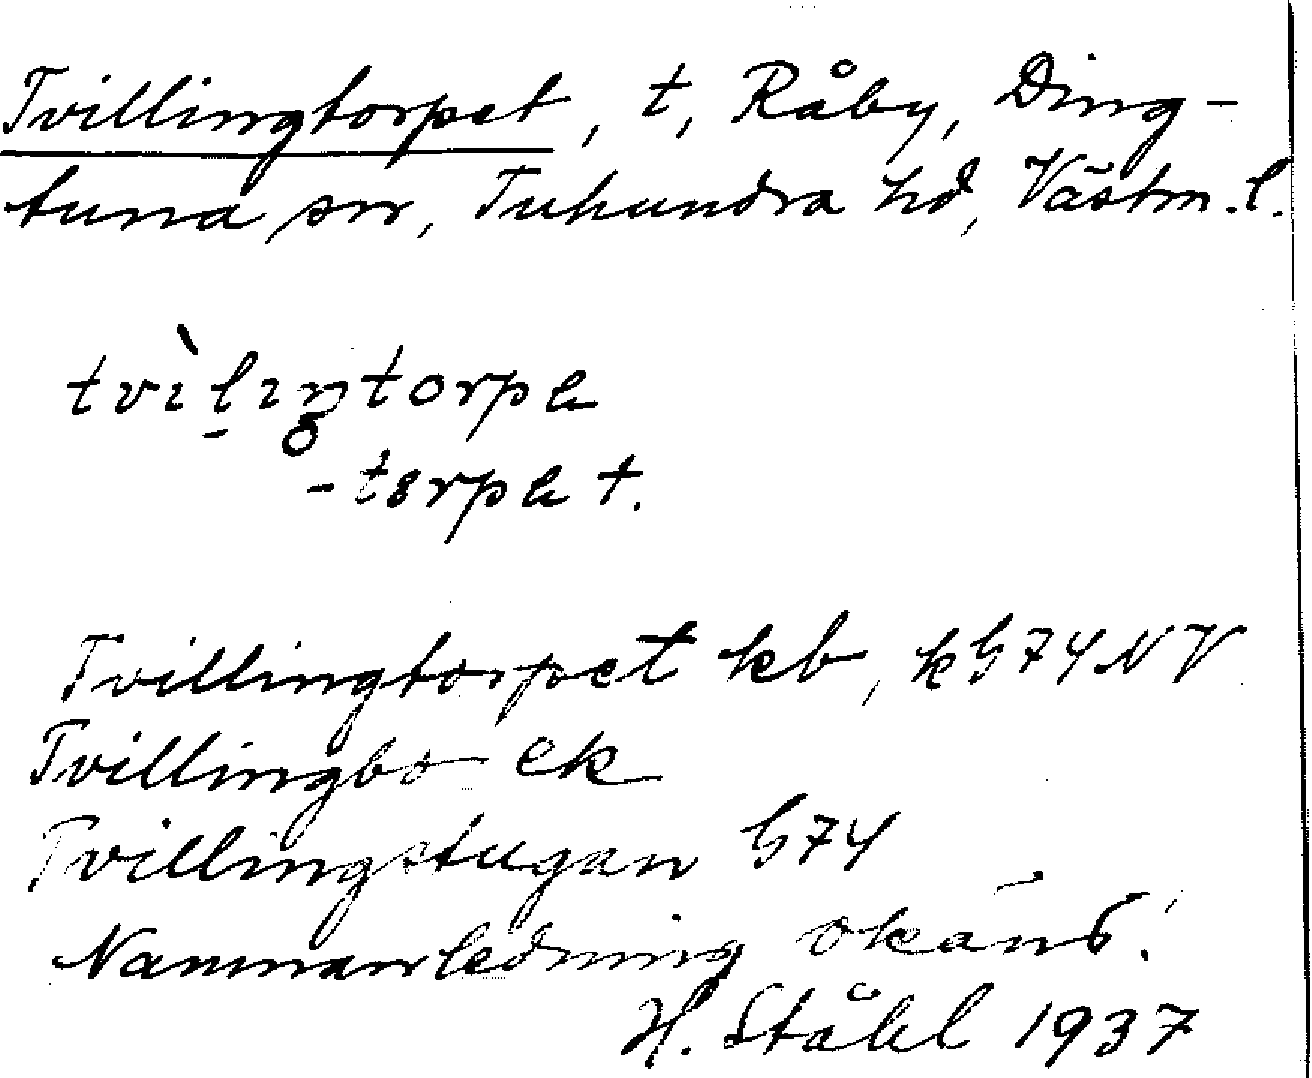 Tvillingtorpet, t, Råby, Ding-
tuna sn, Tuhundra hd, Västm. l.
tvìl̠ıŋtorpa
-torpet.
Tvillingtorpet kb, k G74 NV
Tvillingbo ek
Tvillingstugan G74
Namnanledning okänd.
H. Ståhl 1937